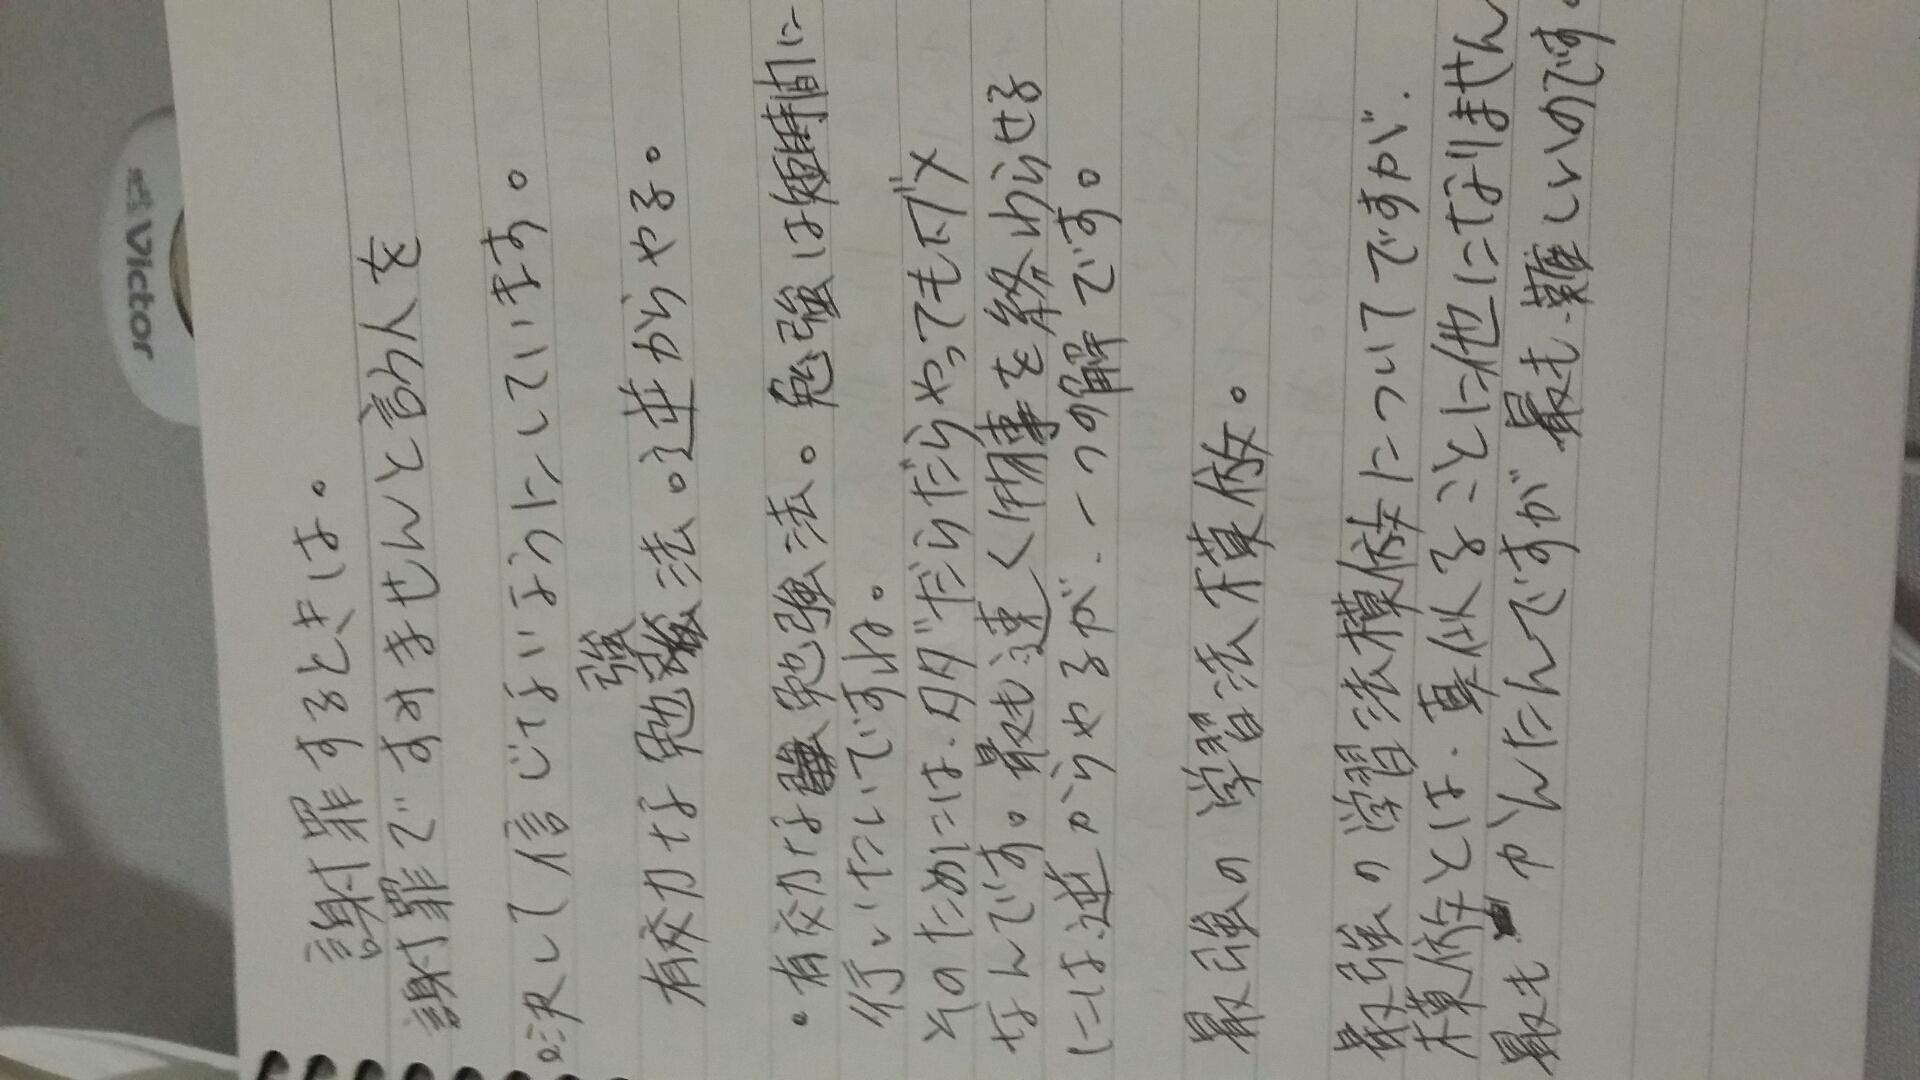 Victor
謝罪するときは。
謝罪ですみませんと言う人を
決して信じないようにしています。
強
有効な勉法。逆からやる。
・有効な勉強法。勉強は短時間に
行いたいですね。
そのためには、ダダだらだらやってもダメ
なんです。最も速く用事を終わらせる
には逆からやるが、一つの解です。
最強の学習法模倣。
最強の学習法模倣についてですが、
模倣とは、真似ることに他になりません
最もかんたんですが最も難しいのです。